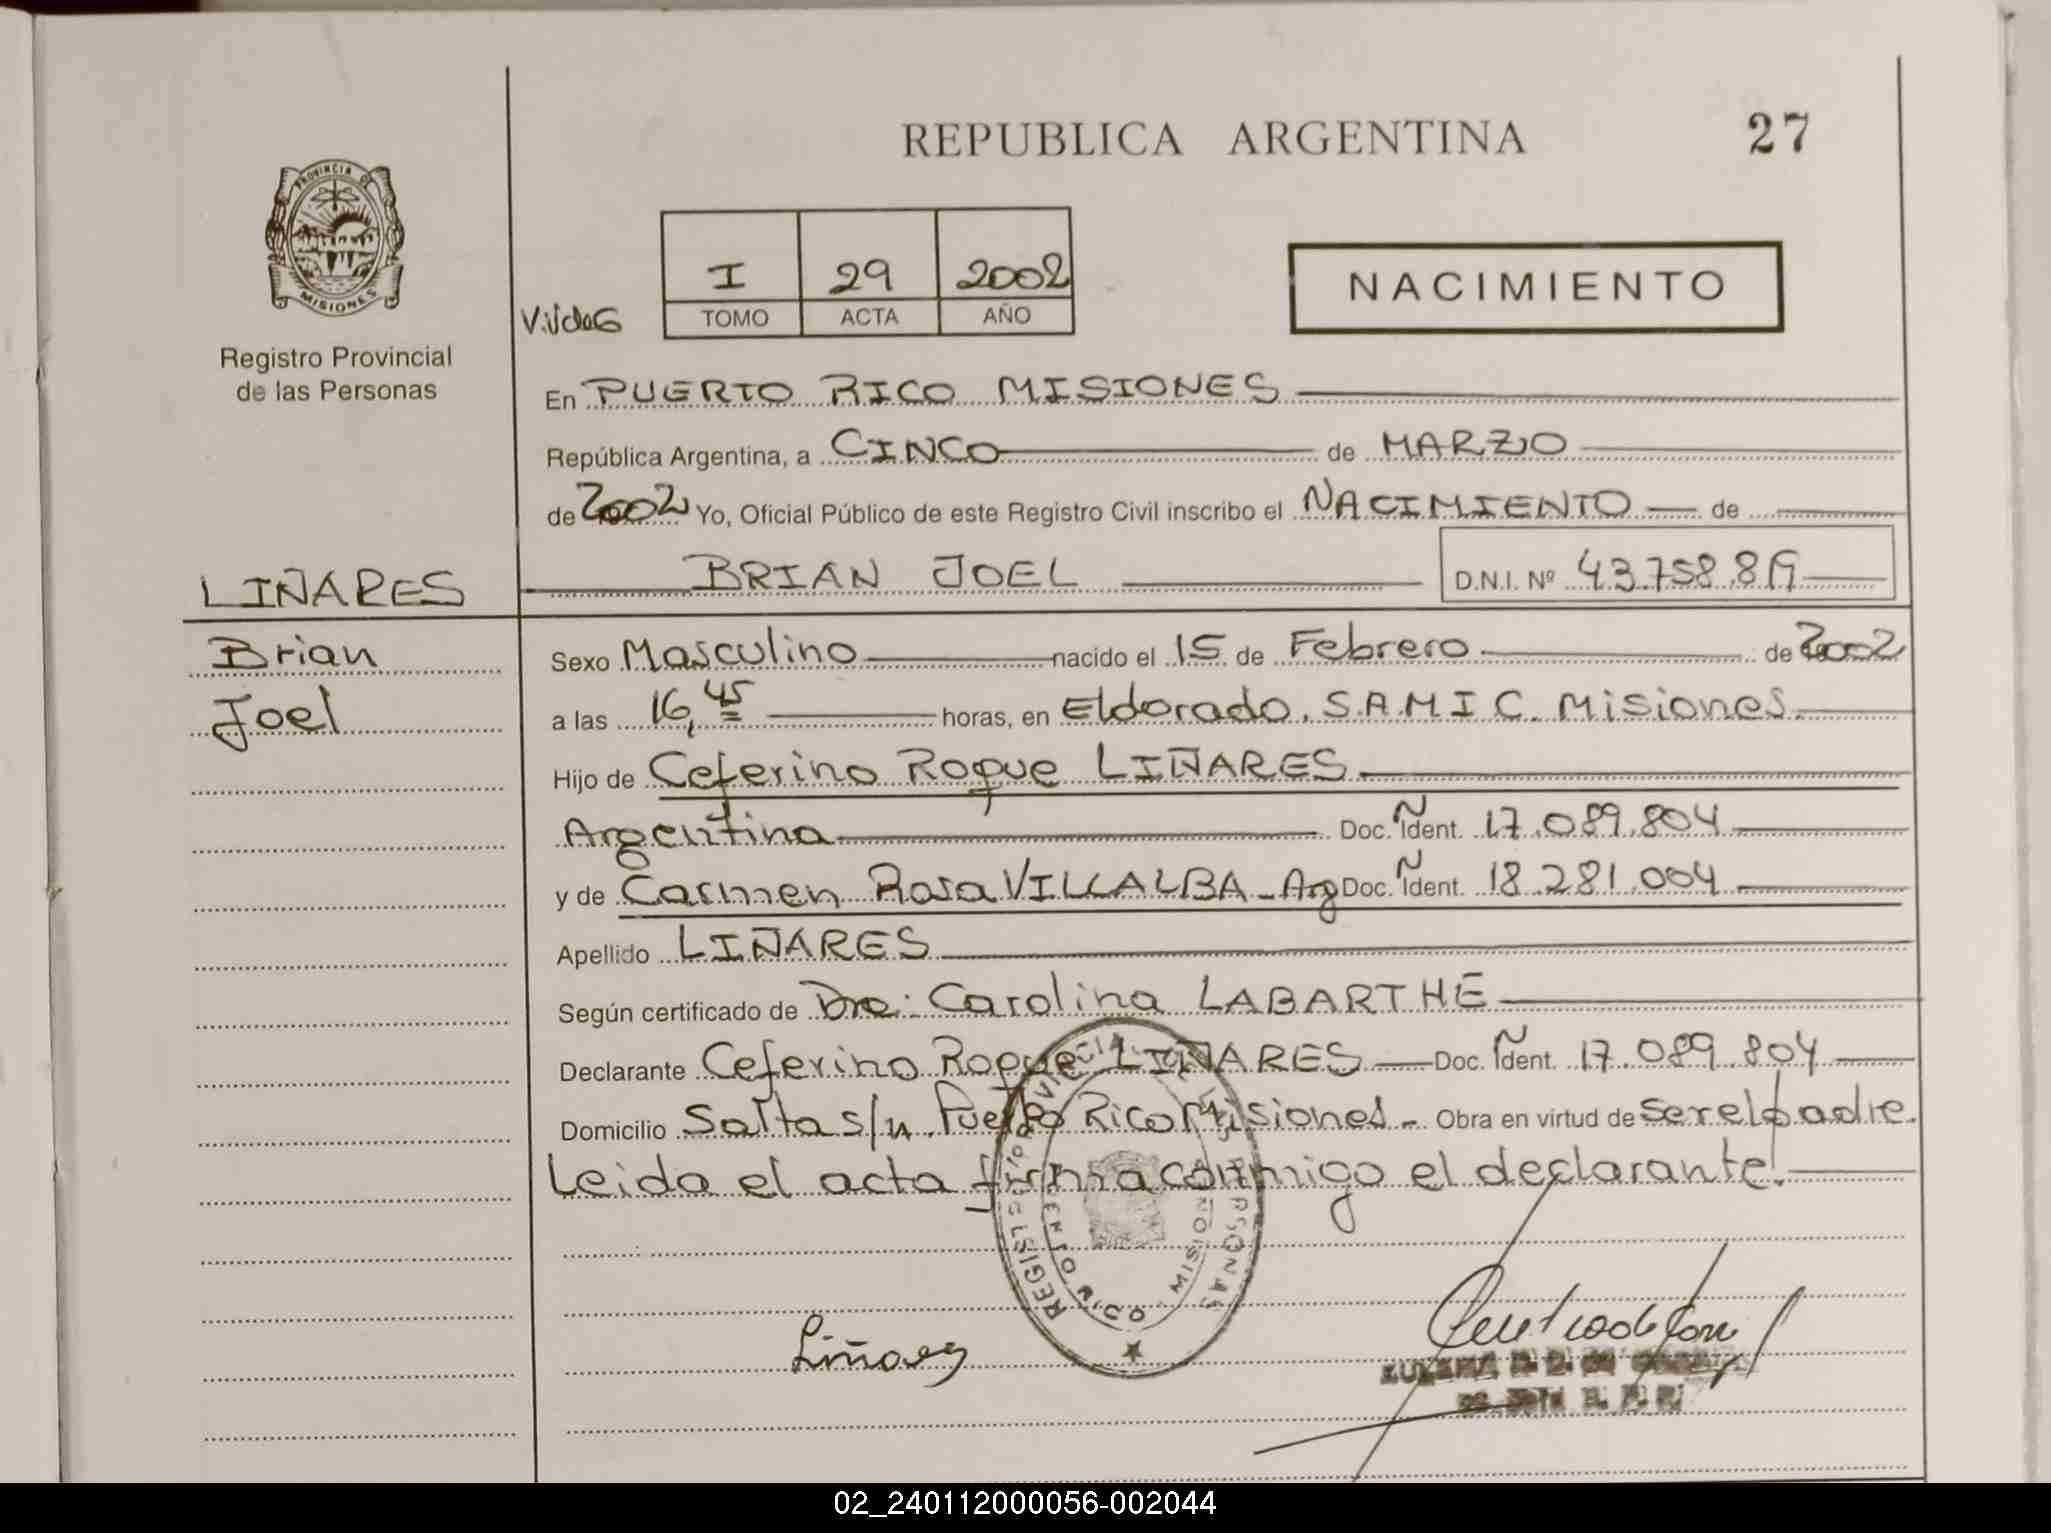 REPUBLICA ARGENTINA
27
PROVINCIA DE
MISIONES
Registro Provincial
de las Personas
I 29 2002
TOMO ACTA AÑO
NACIMIENTO
En PUERTO RICO MISIONES
República Argentina, a CINCO de MARZO
de 2002 Yo, Oficial Público de este Registro Civil inscribo el NACIMIENTO de
LIÑARES
BRIAN JOEL D.N.I. Nº 43.758.819
Brian
Joel
Sexo Masculino nacido el 15 de Febrero de 2002
a las 16,45 horas, en Eldorado. S.A.M.I.C. Misiones.
Hijo de Ceferino Roque LIÑARES
Argentina Doc. Ident. 17.089.804
y de Carmen Rosa VILLALBA - Arg Doc. Ident. 18.281.004
Apellido LIÑARES
Según certificado de Dra: Carolina LABARTHE
Declarante Ceferino Roque LIÑARES Doc. Ident. 17.089.804
Domicilio Salta s/n. Puerto Rico Misiones - Obra en virtud de ser el padre.
Leida el acta firma conmigo el declarante.
REGISTRO PROVINCIAL DE LAS PERSONAS
MISIONES
Liñares
02_240112000056-002044